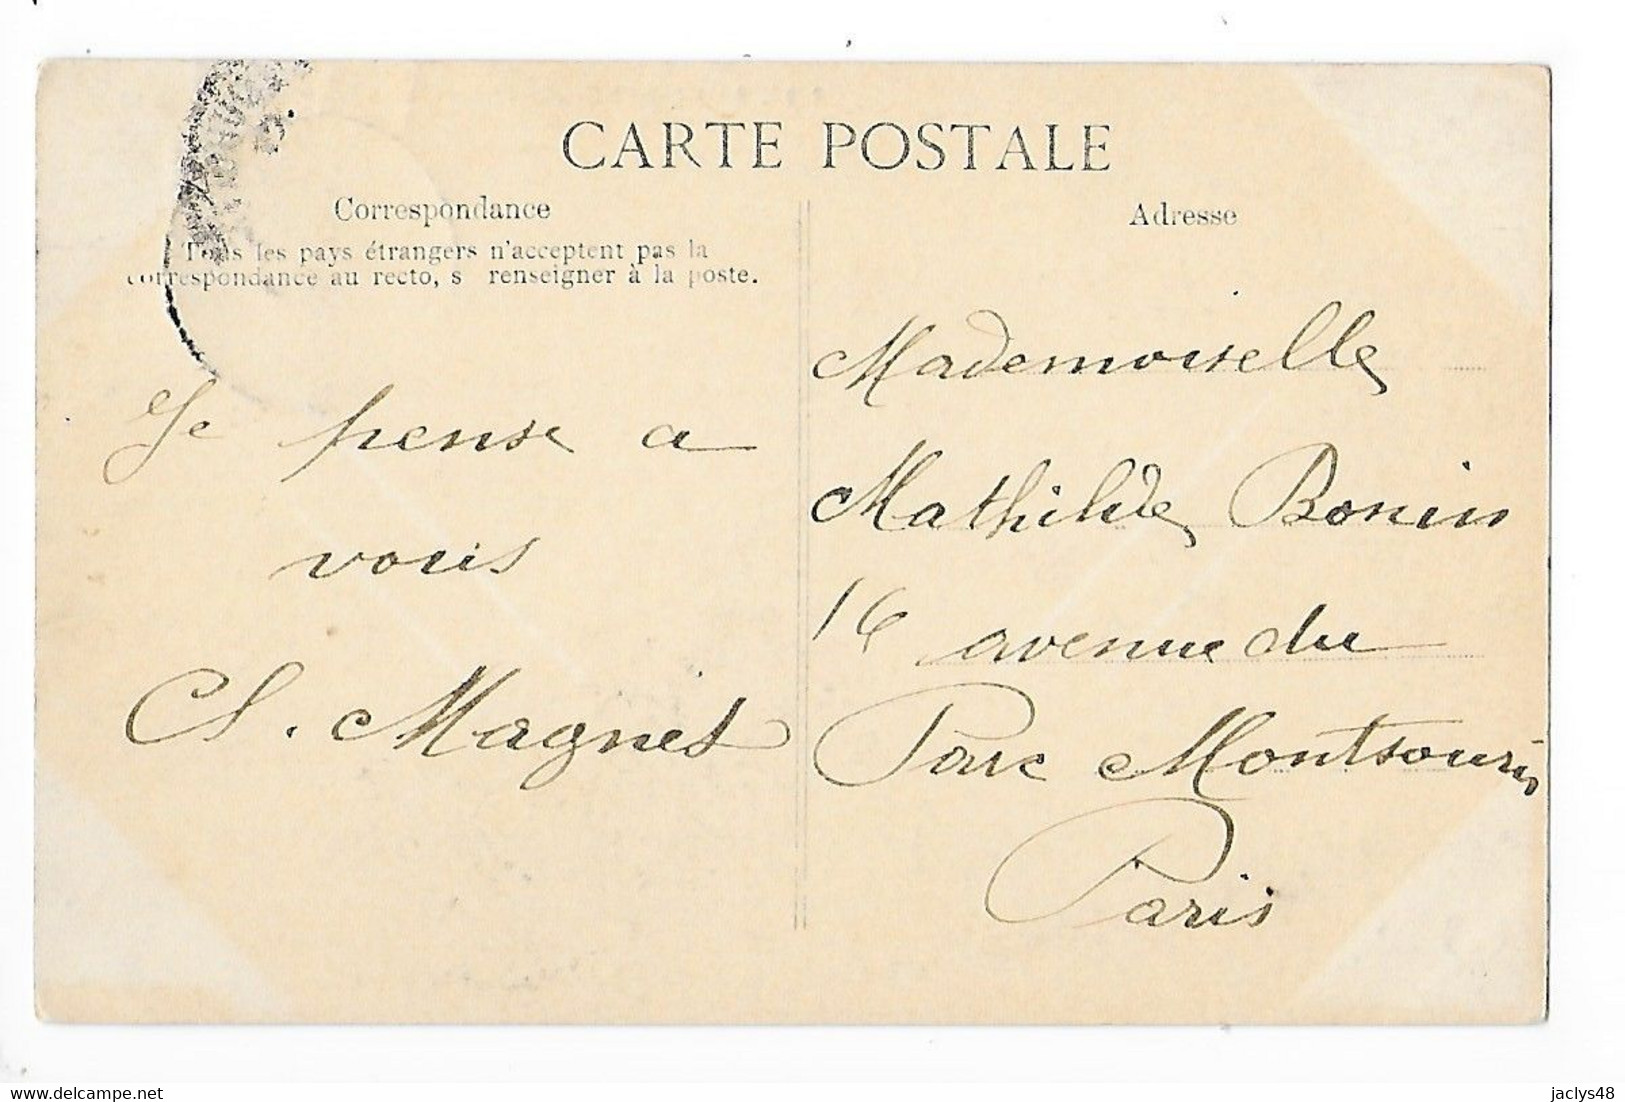 CARTE POSTALE
Correspondance
Tous les pays étrangers n'acceptent pas la
correspondance au recto, s renseigner à la poste.
Je pense a
vous
Magnet
Adresse
Mademoiselle
Mathilde Bonin
16 avenue du
Parc Montsouris
Paris
www.delcampe.net
jaclys48